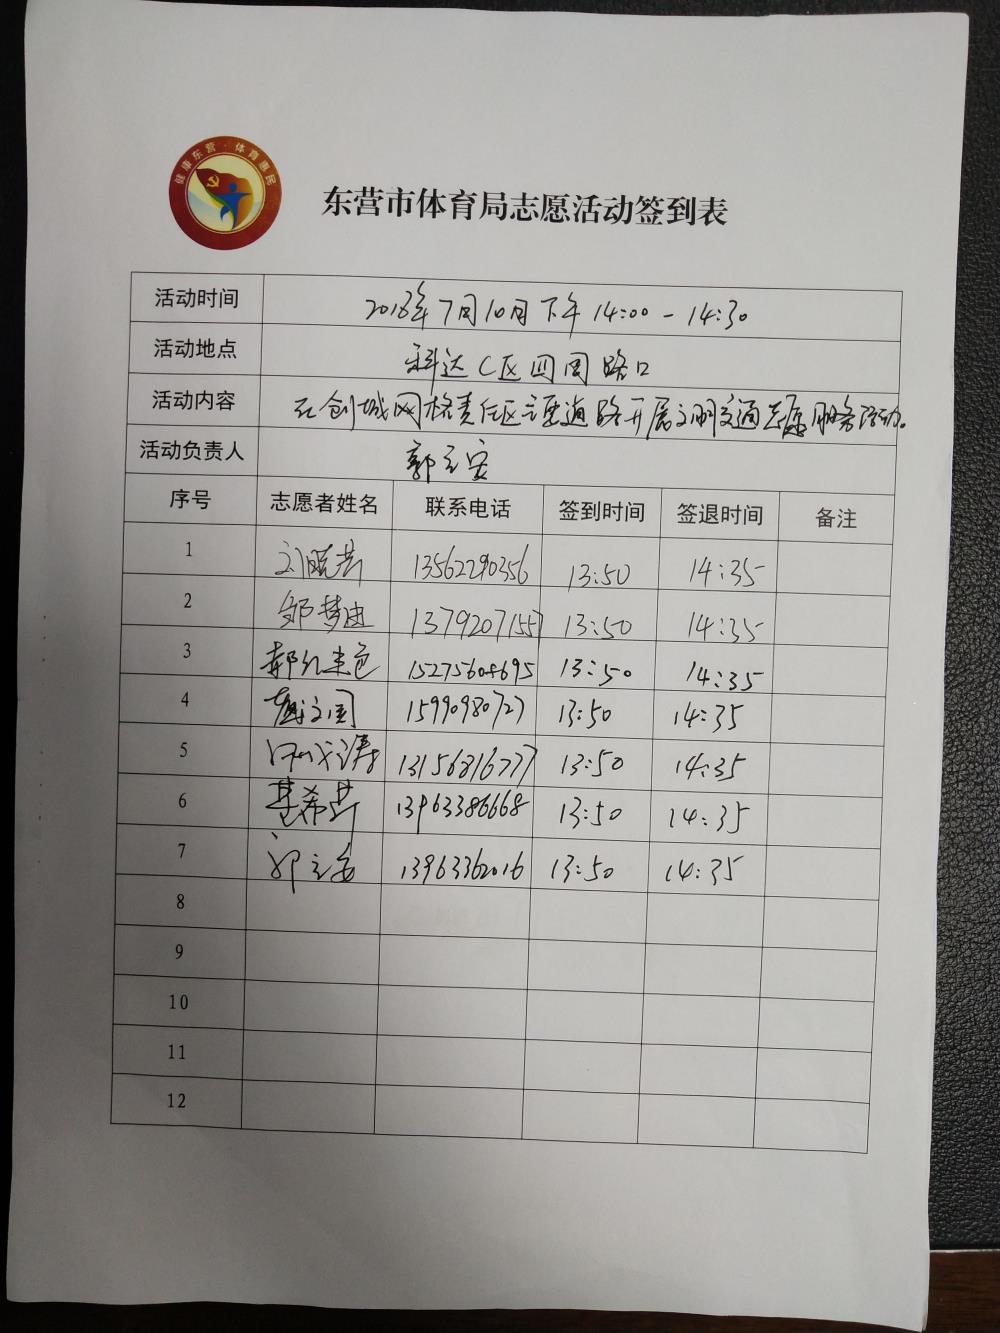 健康东营·体育惠民
东营市体育局志愿活动签到表
活动时间 2018年7月10日下午14:00-14:30
活动地点 科达C区四周路口
活动内容 在创城网格责任区主要道路开展文明交通志愿服务活动。
活动负责人 郭立安
序号 志愿者姓名 联系电话 签到时间 签退时间 备注
1 刘晓芸 13562290356 13:50 14:35
2 邹梦迪 13792071557 13:50 14:35
3 郝红 15275608695 13:50 14:35
4 文国 15990980727 13:50 14:35
5 涛 13156816777 13:50 14:35
6 希 13963386668 13:50 14:35
7 郭立安 13963362016 13:50 14:35
8
9
10
11
12